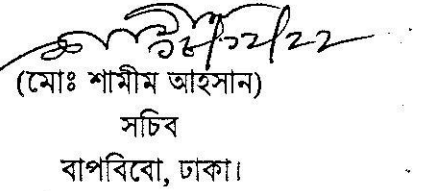 (মোঃ শামীম আহসান)
সচিব
বাপবিবো, ঢাকা।